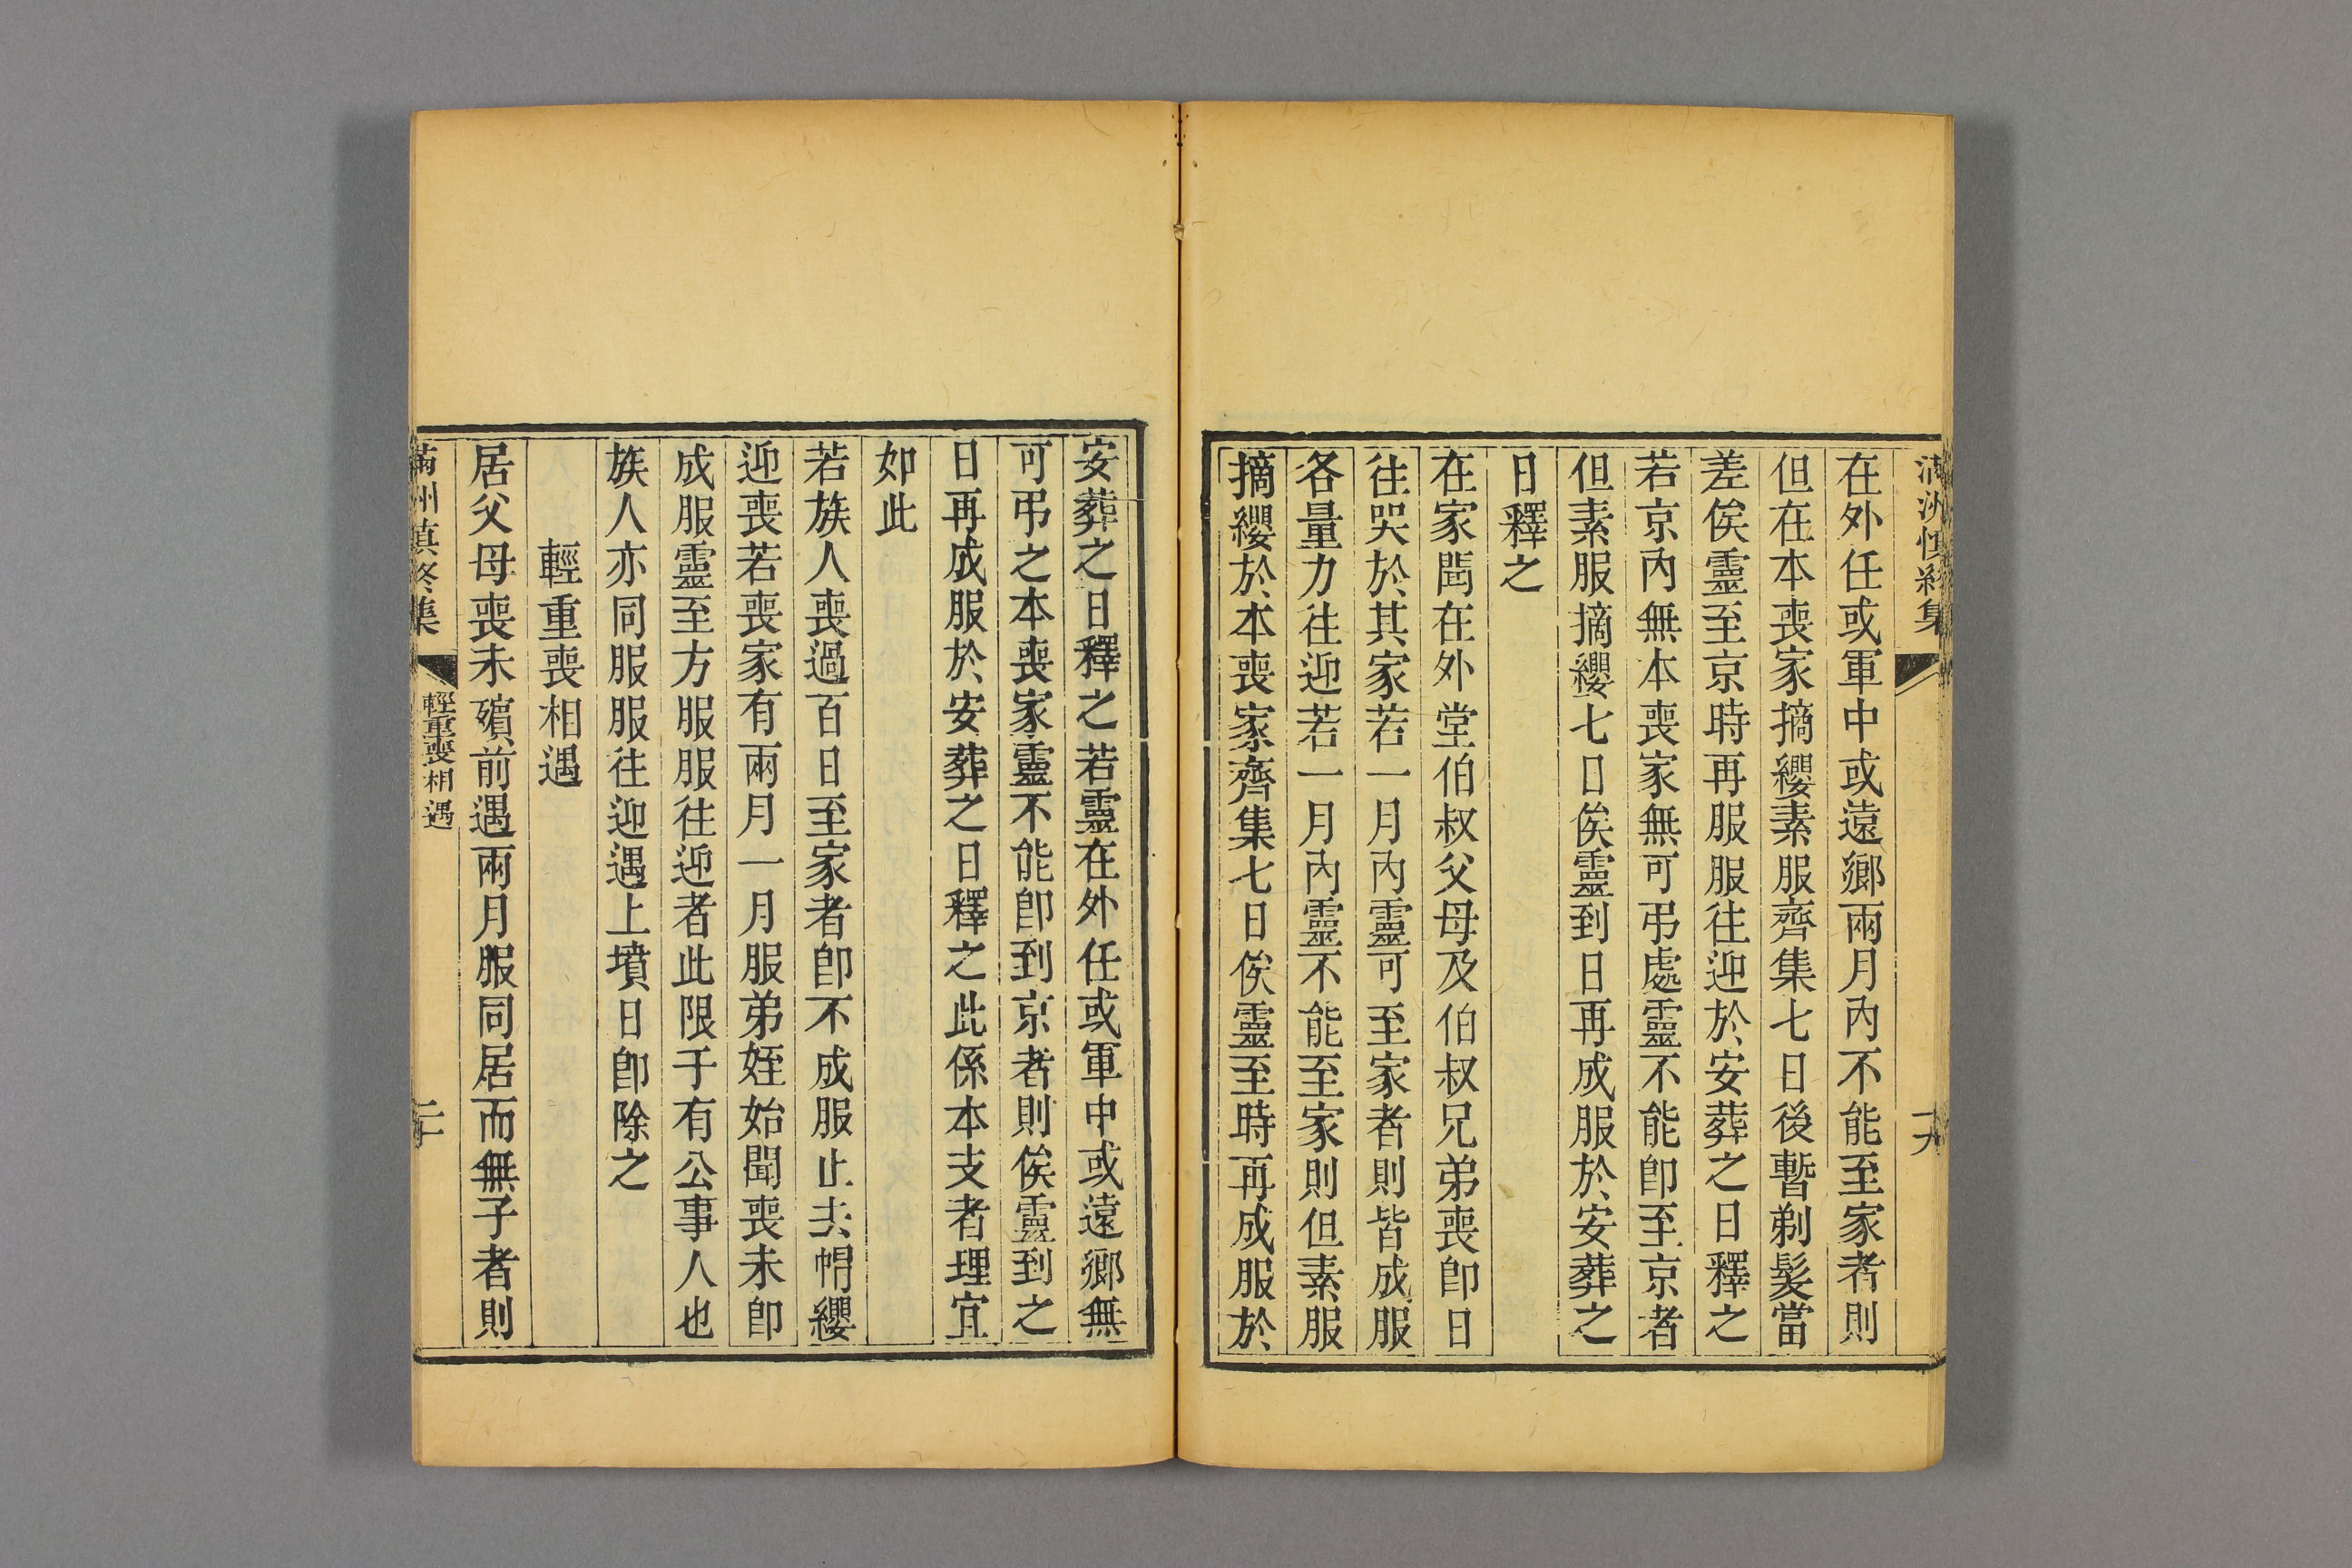 滿洲慎終集
十九
在外任或軍中或遠鄉兩月內不能至家者則
但在本喪家摘纓素服齊集七日後暫剃髮當
差俟靈至京時再服服往迎於安葬之日釋之
若京內無本喪家無可弔處靈不能卽至京者
但素服摘纓七日俟靈到日再成服於安葬之
日釋之
在家聞在外堂伯叔父母及伯叔兄弟喪卽日
往哭於其家若一月內靈可至家者則皆成服
各量力往迎若一月內靈不能至家則但素服
摘纓於本喪家齊集七日俟靈至時再成服於
安葬之日釋之若靈在外任或軍中或遠鄉無
可弔之本喪家靈不能卽到京者則俟靈到之
日再成服於安葬之日釋之此係本支者理宜
如此
若族人喪過百日至家者卽不成服止去帽纓
迎喪若喪家有兩月一月服弟姪始聞喪未卽
成服靈至方服服往迎者此限于有公事人也
族人亦同服服往迎遇上墳日卽除之
輕重喪相遇
居父母喪未殯前遇兩月服同居而無子者則
滿州慎終集
輕重喪相遇
二十